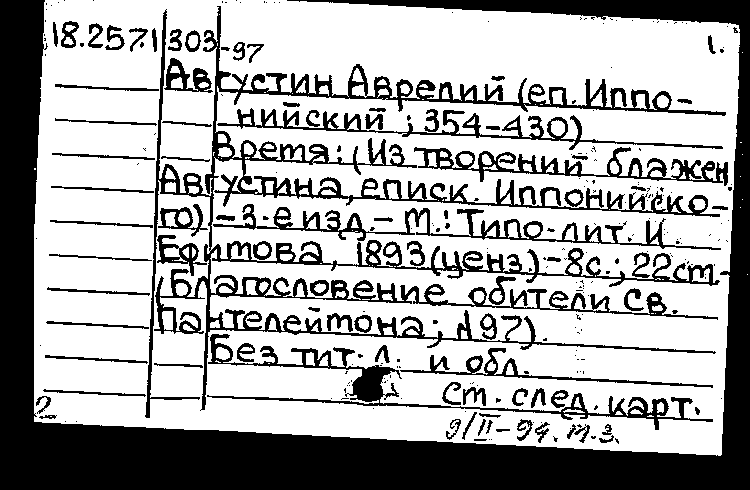 18.257.1 303-97 1.
Августин Аврелий (еп. Иппо-
нийский ; 354-430)
Время : (Из творений блажен.
Августина, еписк. Иппонийско-
го) - 3-е изд. - М.: Типо-лит. И.
Ефимова, 1893 (ценз.) - 8с.; 22см.-
(Благословение обители св.
Пантелеймона ; №97).
Без тит. л. и обл.
См. след. карт.
2
9/II-94. м.з.